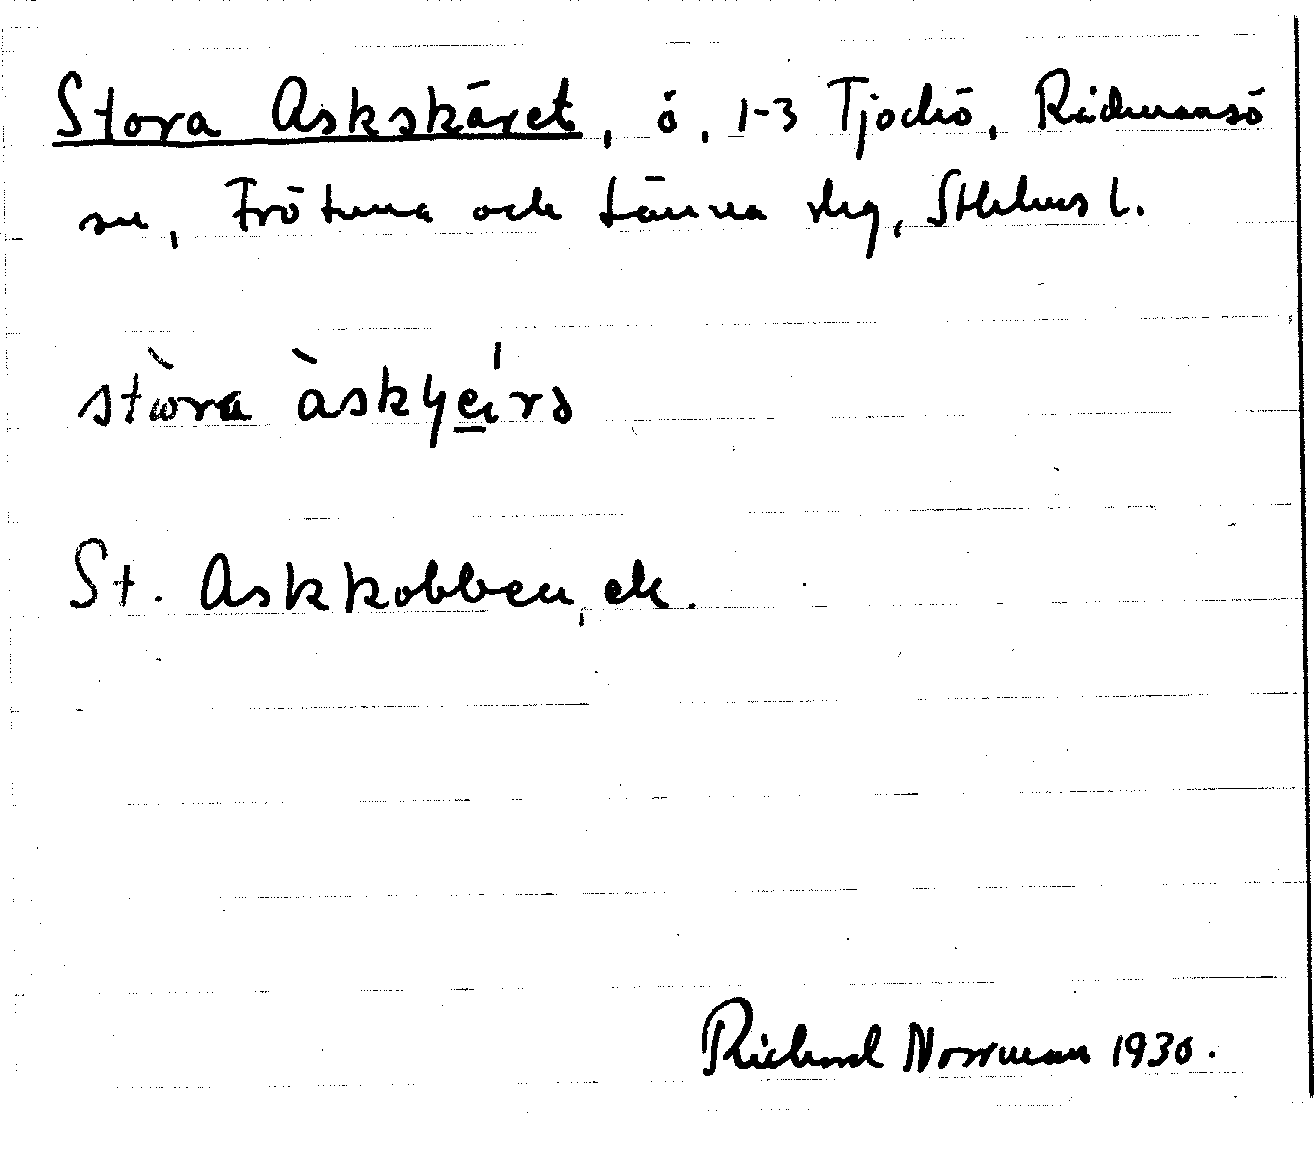 Stora Askskäret, ö, 1-3 Tjockö, Rådmansö
sn, Frötuna och Länna skg, Sthlms l.
St. Askkobben, ek.
Richard Norrman 1930.